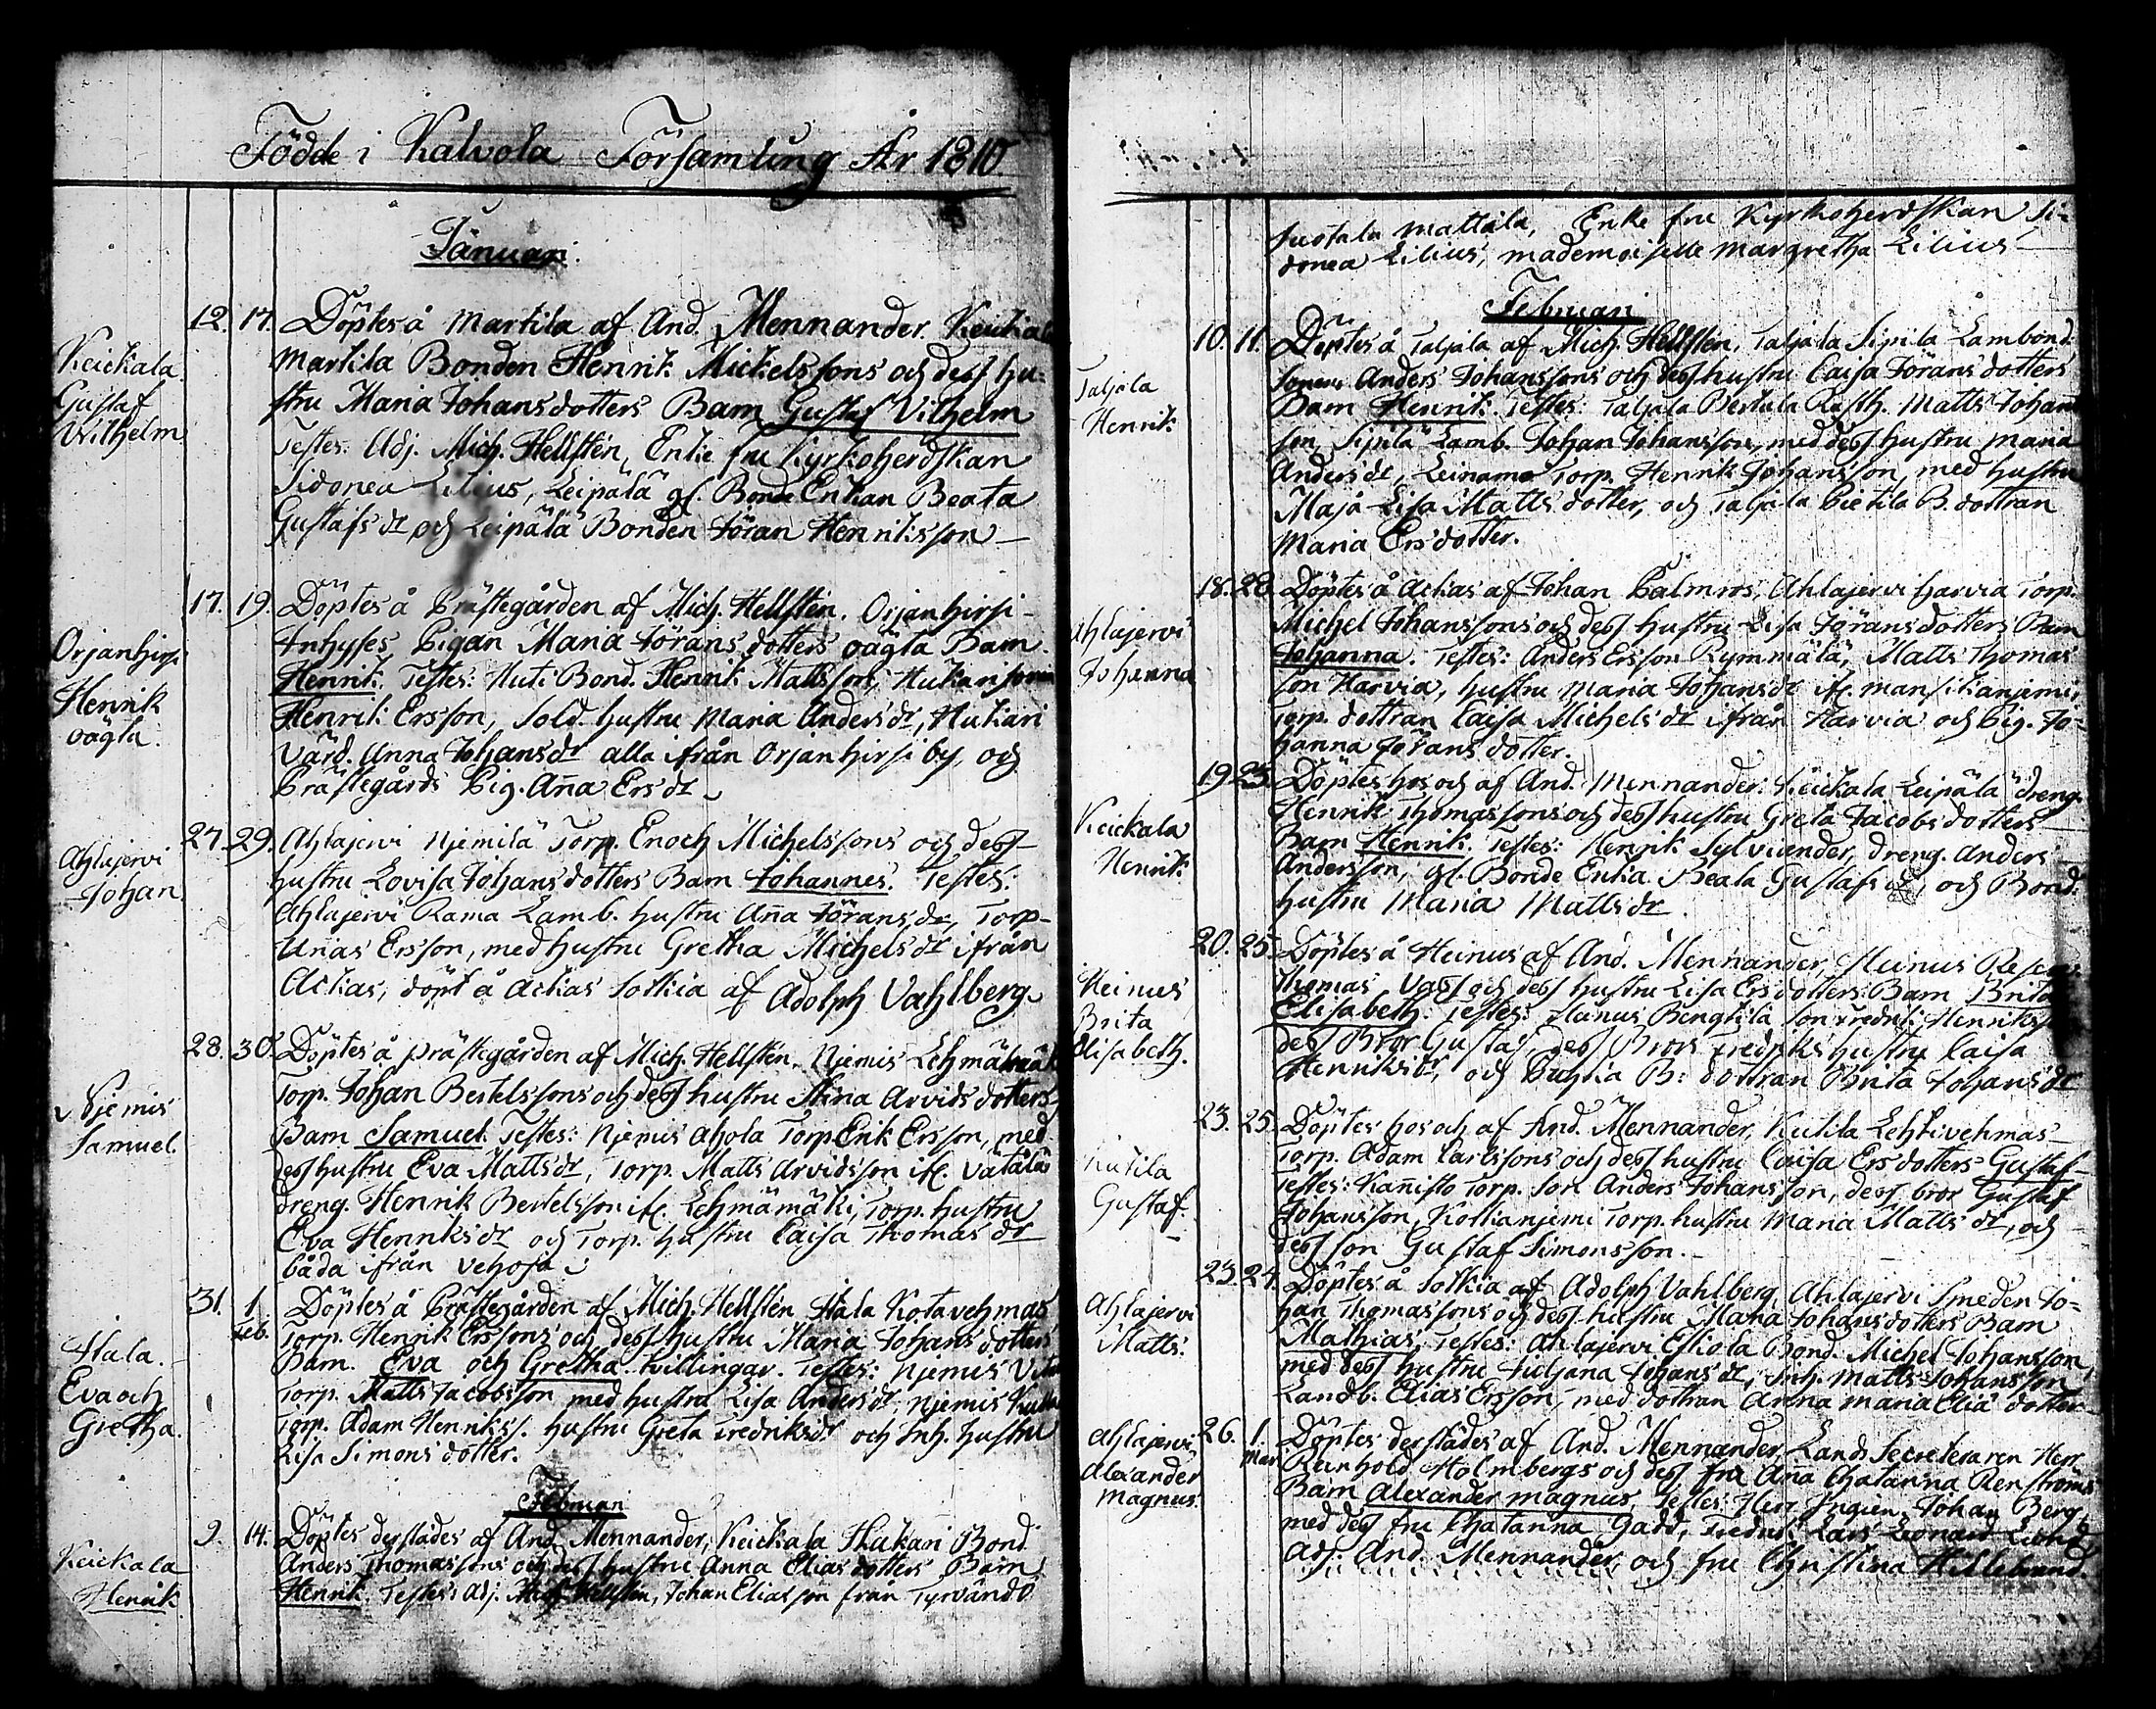 Födde i Kalvola Församling År 1810.
Januari.
Keickala
Gustaf
Vilhelm
12. 17. Döptes å Martila af And. Mennander. Keickala
Martila Bonden Henrik Mickelssons och dess hu-
stru Maria Johansdotters Barn Gustaf Vilhelm
Testes: Adj. Mich. Hellstén, Enke fru Kyrkoherdskan
Sidonea Lilius, Leipälä gl. Bonde Enkan Beata
Gustafs dr och Leipälä Bonden Jöran Henriksson
Orjanhirsi
Henrik
oägta.
17. 19. Döptes å Prästegården af Mich. Hellstén. Orjanhirsi
Inhyses Pigan Maria Jörans dotters oägta Barn
Henrik. Testes: Huti Bond. Henrik Mattsson, Hukari sonen
Henrik Ersson, Sold. hustru Maria Anders dr, Hukari
Värd. Anna Johans dr alla ifrån Orjanhirsi by, och
Prästegårds Pig. Aña Ers dr
Ahlajervi
Johan
27. 29. Ahlajervi Njemilä Torp. Enoch Michelssons och dess
hustru Lovisa Johans dotters Barn Johannes. Testes:
Ahlajervi Rama Lamb. hustru Aña Jörans dr, Torp.
Ersson, med hustru Gretha Michels dr ifrån
Ackas, döpt å Ackas Sotkia af Adolph Vahlberg.
Njemis
Samuel.
28. 30. Döptes å prästegården af Mich. Hellstén. Njemis Lehmämäki
Torp. Johan Bertelssons och dess hustru Stina Arvids dotters
Barn Samuel. Testes: Njemis Ahola Torp. Erik Ersson, med
dess hustru Eva Matts dr, Torp. Matts Arvidsson ifr. Vätälä
dreng. Henrik Bertelsson ifr. Lehmämäki, Torp. hustru
Eva Henriks dr och Torp. hustru Caisa Thomas dr
båda ifrån Vehosa
Itala.
Eva och
Gretha.
31. 1 Feb. Döptes å Prästegården af Mich. Hellstén Itala Kotavehmas
Torp. Henrik Erssons och dess hustru Maria Johans dotters
Barn. Eva och Gretha tvillingar. Testes: Njemis
Torp. Matts Jacobsson med hustru Lisa Anders dr, Njemis
Torp. Adam Henrikss. hustru Greta Fredriks dr och Inh. hustru
Lisa Simons dotter.
Februari
Keickala
Henrik
9. 14. Döptes derstädes af And. Mennander, Keickala Hakari Bond.
Anders Thomassons och dess hustru Anna Elias dotters Barn
Henrik. Testes: Adj. Mich. Hellstén, Johan Eliasson från Tyrvändö
Suotala Mattila, Enke fru Kyrkoherdskan Si-
donea Lilius, mademoiselle Margretha Lilius
Februari
Taljala
Henrik
10. 11. Döptes å Taljala af Mich. Hellstén. Taljala Sipilä Lambond.
sonens Anders Johanssons och dess hustru Caisa Jörans dotters
Barn Henrik. Testes: Taljala Bertula Rusth. Matts Johans
son, Sipilä Lamb. Johan Johansson, med dess hustru Maria
Anders dr, Leinama Torp. Henrik Johansson, med hustru
Maja Lisa Matts dotter, och Taljala Pietila B. dottran
Maria Ers dotter.
Ahlajervi
Johanna
18. 20. Döptes å Ackas af Johan Palmros, Ahlajervi Harvia Torp.
Michel Johanssons och dess hustru Lisa Jörans dotters Barn
Johanna. Testes: Anders Ersson Rymmälä, Matts Thomas
son Harvia, hustru Maria Johans dr ifr. Mansikanjemi,
Torp. dottran Caisa Michels dr ifrån Harvia och Pig. Jo-
hanna Jörans dotter.
Keickala
Henrik
19. 23. Döptes hos och af And. Mennander. Keickala Leipälä dreng.
Henrik Thomassons och dess hustru Greta Jacobs dotters
Barn Henrik. Testes: Henrik Sylvander, dreng. Anders
Andersson, gl. Bonde Enkia Beata Gustafs dr, och Bond.
hustru Maria Matts dr
Heinus
Brita
Elisabeth.
20. 25. Döptes å Heinus af And. Mennander, Heinus
Thomas Vass och dess hustru Lisa Ers dotters Barn Brita
Elisabeth. Testes: Heinus Bengtilä son Fredrik Henriksson
dess Bror Gustaf, dess Brors Fredriks hustru Caisa
Henriks dr, och B: dottran Brita Johans dr
Kutila
Gustaf.
23. 25. Döptes hos och af And. Mennander, Kutila Lehtivehmas
Torp. Adam Carlssons och dess hustru Caisa Ers dotters Gustaf
Testes: Kañisto Torp. son Anders Johansson, dess bror Gustaf
Johansson, Kolkanjemi Torp. hustru Maria Matts dr, och
dess son Gustaf Simonsson.
Ahlajervi
Matts.
23. 24. Döptes å Sotkia af Adolph Vahlberg, Ahlajervi Smeden Jo-
han Thomassons och dess hustru Maria Johans dotters Barn
Mathias, Testes: Ahlajervi Eskola Bond. Michel Johansson,
med dess hustru Juliana Johans dr, Inh. Matts Johansson
Landb. Elias Ersson, med dottran Anna Maria Elia dotter
Ahlajervi
Alexander
Magnus.
26. 1 Mar. Döptes derstädes af And. Mennander, Lands Secreteraren Herr
Reinhold Holmbergs och dess fru Aña Chatarina Renströms
Barn Alexander Magnus, Testes: Herr Johan Berg,
med dess fru Chatarina Gadd, Lars Leonard
Adj. And. Mennander och fru Christina Hillebrand.